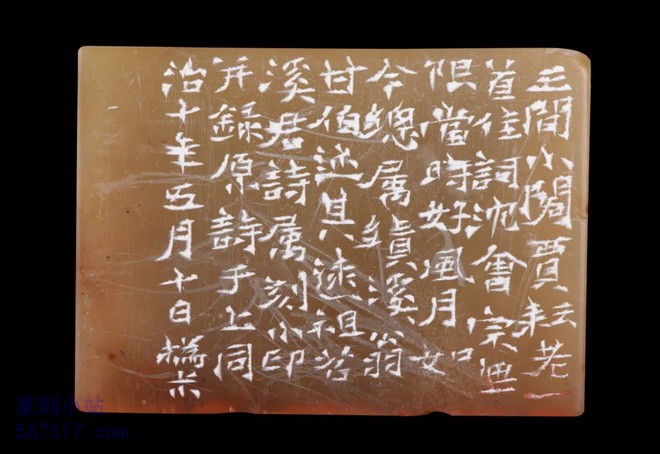 三間小閣賈耘老一
首佳詞沈會宗無
限當時好風月如
今總属績溪翁
甘伯述其遠祖苕
溪君詩属刻小印
并録原詩于上同
治十年五月十日撝尗
篆刻小站
567517.com